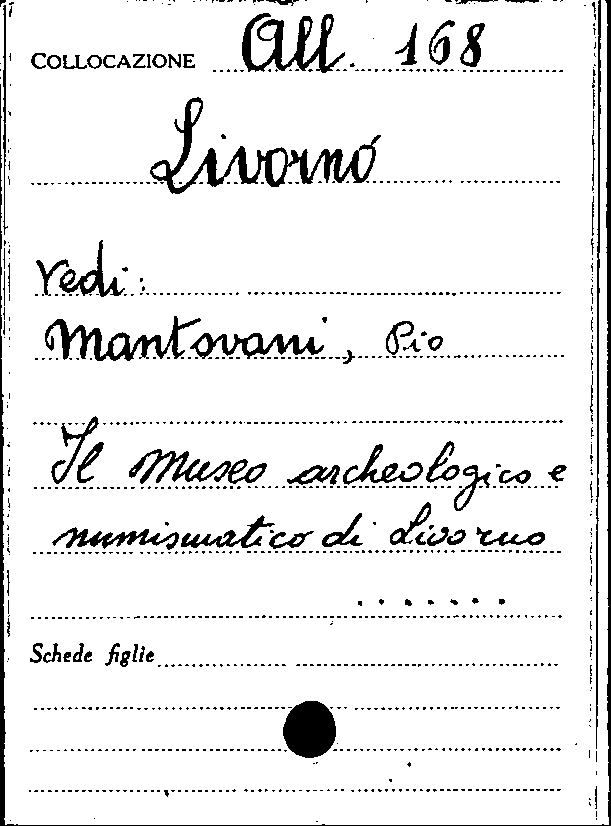 COLLOCAZIONE All. 168
Livorno
Vedi:
Mantovani, Pio
Il Museo archeologico e
numismatico di Livorno
.......
Schede figlie